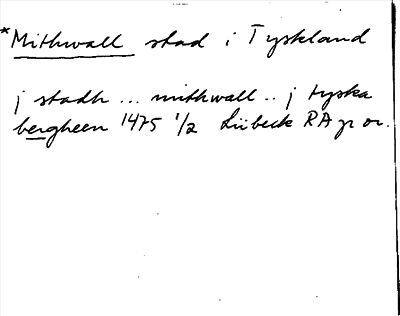 *Mithwall stad i Tyskland
j stadh ... mithwall .. j tyska
bergheen 1475 1/2 Lübeck RA p or.